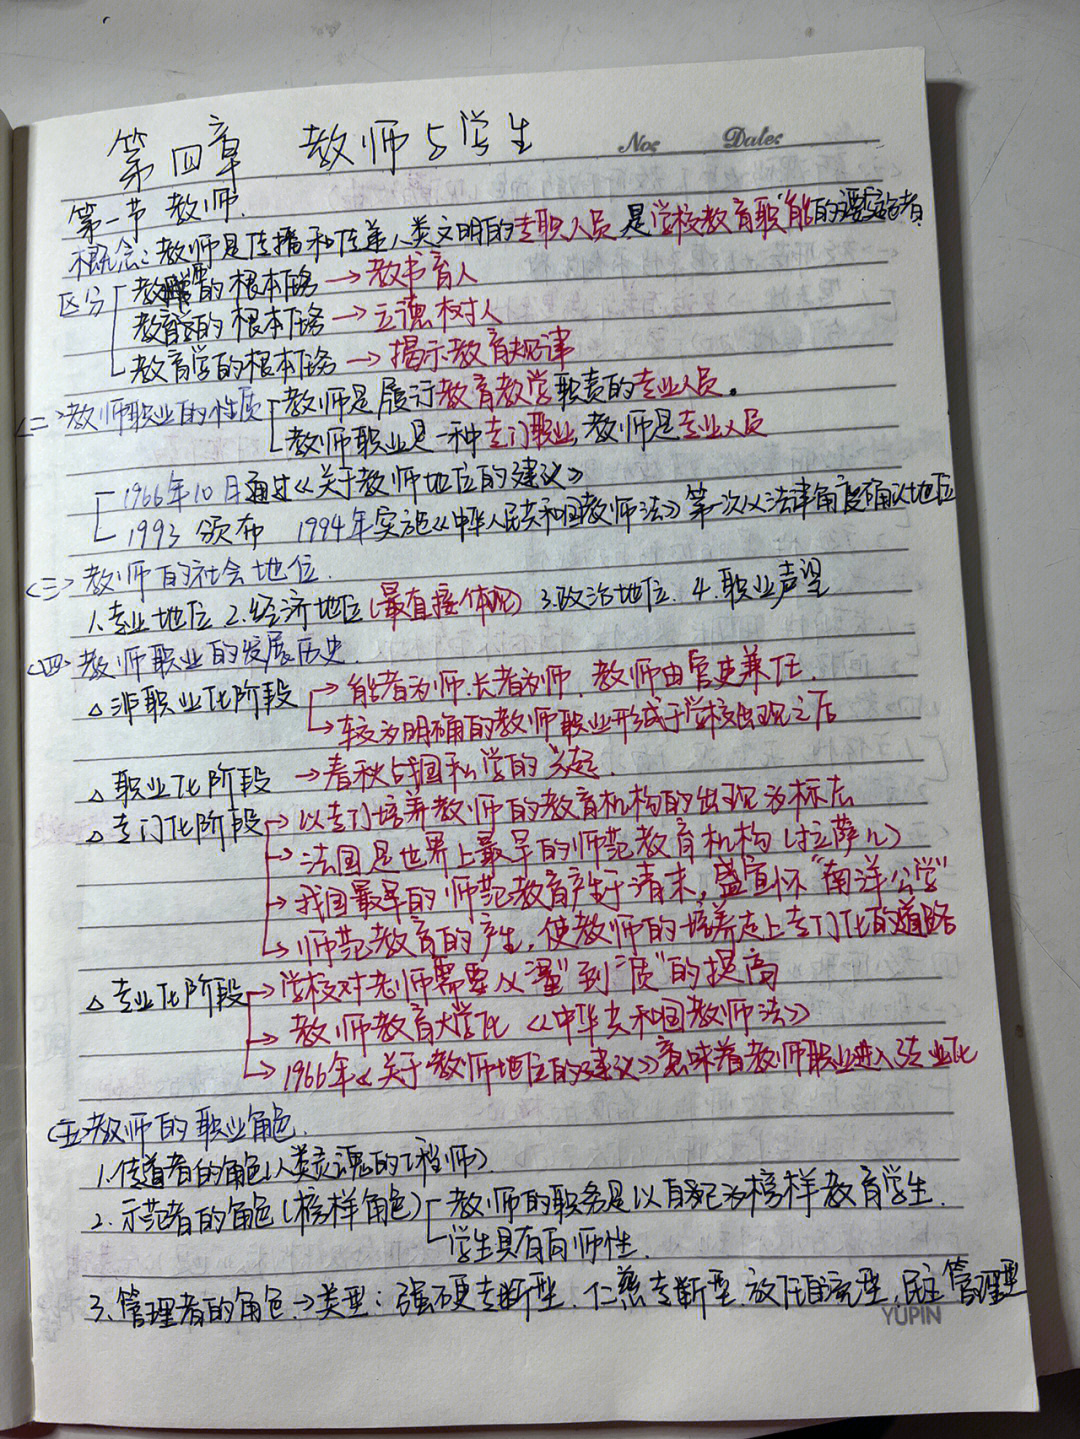 第四章 教师与学生
No: Date:
第一节 教师.
概念:教师是传播和传递人类文明的专职人员是学校教育职能的主要实施者.
区分 教师的根本任务→教书育人
教育的根本任务→立德树人
教育学的根本任务→揭示教育规律
<二>教师职业的性质 教师是履行教育教学职责的专业人员。
教师职业是一种专门职业,教师是专业人员
1966年10月通过《关于教师地位的建议》
1993 颁布 1994年实施《中华人民共和国教师法》第一次从法律角度确认地位
<三>教师的社会地位.
1.专业地位 2.经济地位(最直接体现) 3.政治地位. 4.职业声望
<四>教师职业的发展历史.
△非职业化阶段→能者为师.长者为师.教师由官吏兼任.
→较为明确的教师职业形成于学校出现之后
△职业化阶段→春秋战国私学的兴起.
△专门化阶段→以专门培养教师的教育机构的出现为标志
→法国是世界上最早的师范教育机构(拉萨儿)
→我国最早的师范教育产生于清末,盛宣怀"南洋公学"
→师范教育的产生,使教师的培养走上专门化的道路
△专业化阶段→学校对老师需要从"量"到"质"的提高
→教师教育大学化《中华共和国教师法》
→1966年《关于教师地位的建议》意味着教师职业进入专业化
<五>教师的职业角色.
1.传道者的角色(人类灵魂的工程师).
2.示范者的角色(榜样角色) 教师的职务是以自己为榜样教育学生.
学生具有向师性.
3.管理者的角色→类型:强硬专断型.仁慈专断型.放任自流型.民主管理型
YUPIN